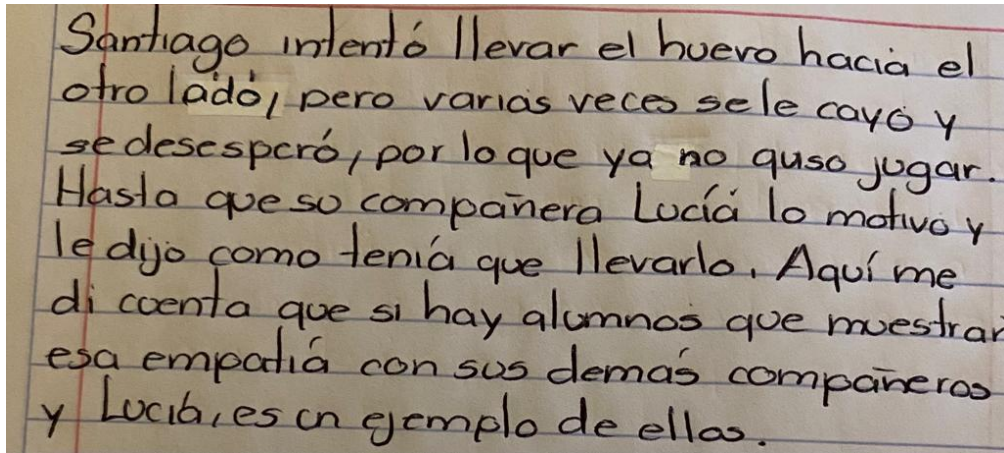 Santiago intentó llevar el huevo hacia el
otro lado, pero varias veces se le cayó y
se desesperó, por lo que ya no quso jugar.
Hasta que su compañera Lucía lo motivo y
le dijo como tenía que llevarlo. Aquí me
di cuenta que si hay alumnos que muestran
esa empatía con sus demás compañeros
y Lucía, es un ejemplo de ellos.